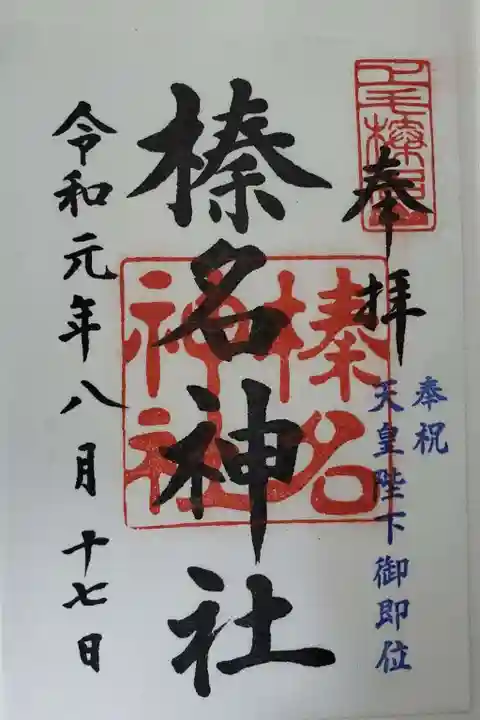 上毛榛名
奉拝
奉祝
天皇陛下御即位
榛名神社
榛名
神社
令和元年八月十七日